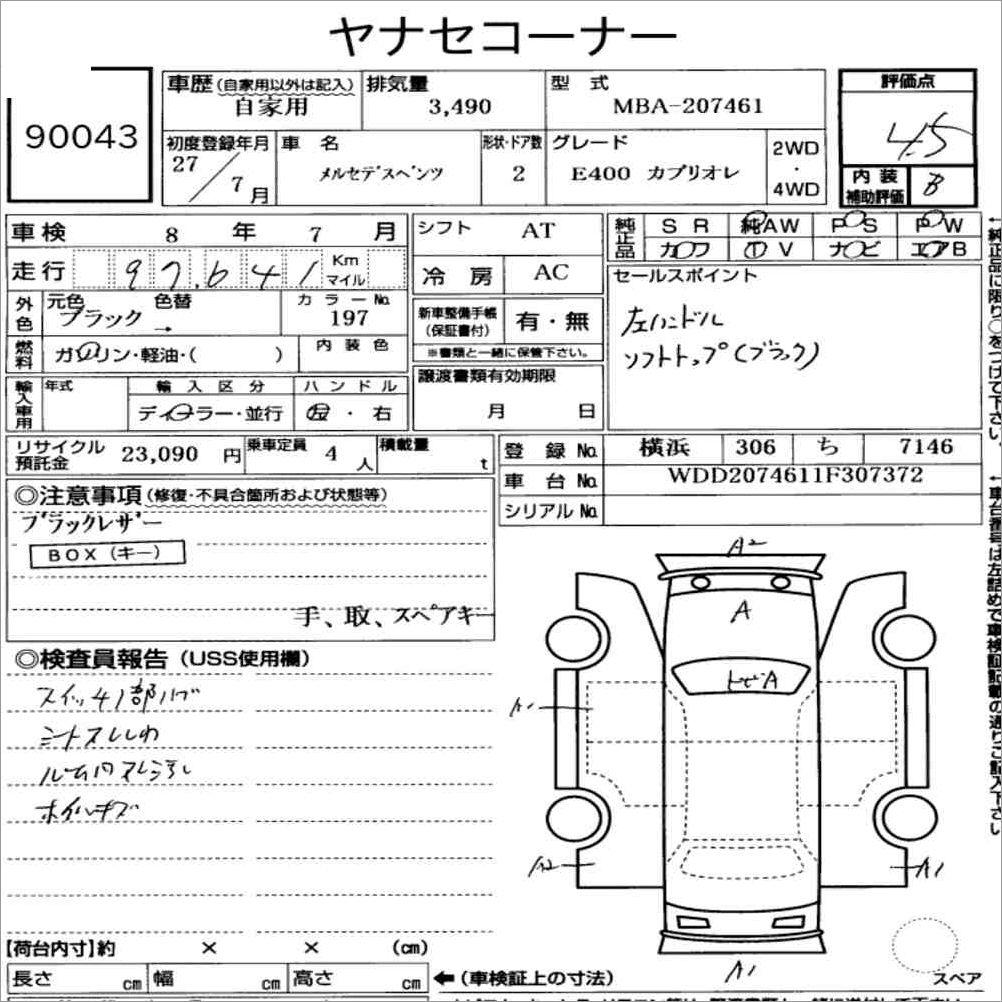 ヤナセコーナー
90043
車歴 (自家用以外は記入) 自家用
排気量 3,490
型式 MBA-207461
評価点 4.5
初度登録年月 27/7月
車名 メルセデスベンツ
形状・ドア数 2
グレード E400 カブリオレ
2WD・4WD
内装補助評価 B
車検 8年7月
シフト AT
純正品 SR 純AW PS PW
カワ TV ナビ エアB
走行 97,641 Km マイル
冷房 AC
セールスポイント
左ハンドル
ソフトトップ(ブラック)
外色 元色 ブラック 色替 →
カラーNo. 197
新車整備手帳(保証書付) 有・無
※書類と一緒に保管下さい。
燃料 ガソリン・軽油・( )
内装色
譲渡書類有効期限 月 日
輸入車用 年式
輸入区分 ディーラー・並行
ハンドル 左・右
リサイクル預託金 23,090円
乗車定員 4人
積載量 t
登録No. 横浜 306 ち 7146
車台No. WDD2074611F307372
シリアルNo.
◎注意事項(修復・不具合箇所および状態等)
ブラックレザー
BOX(キー)
手、取、スペアキー
◎検査員報告(USS使用欄)
スイッチ1部ハゲ
シートスレしわ
ホイルキズ
A2
A
トビA
A1
A2
A1
A1
スペア
【荷台内寸】約 × × (cm)
長さ cm 幅 cm 高さ cm
←(車検証上の寸法)
←純正品に限り○をつけて下さい。
←車台番号は左詰めで車検証記載の通りご記入下さい